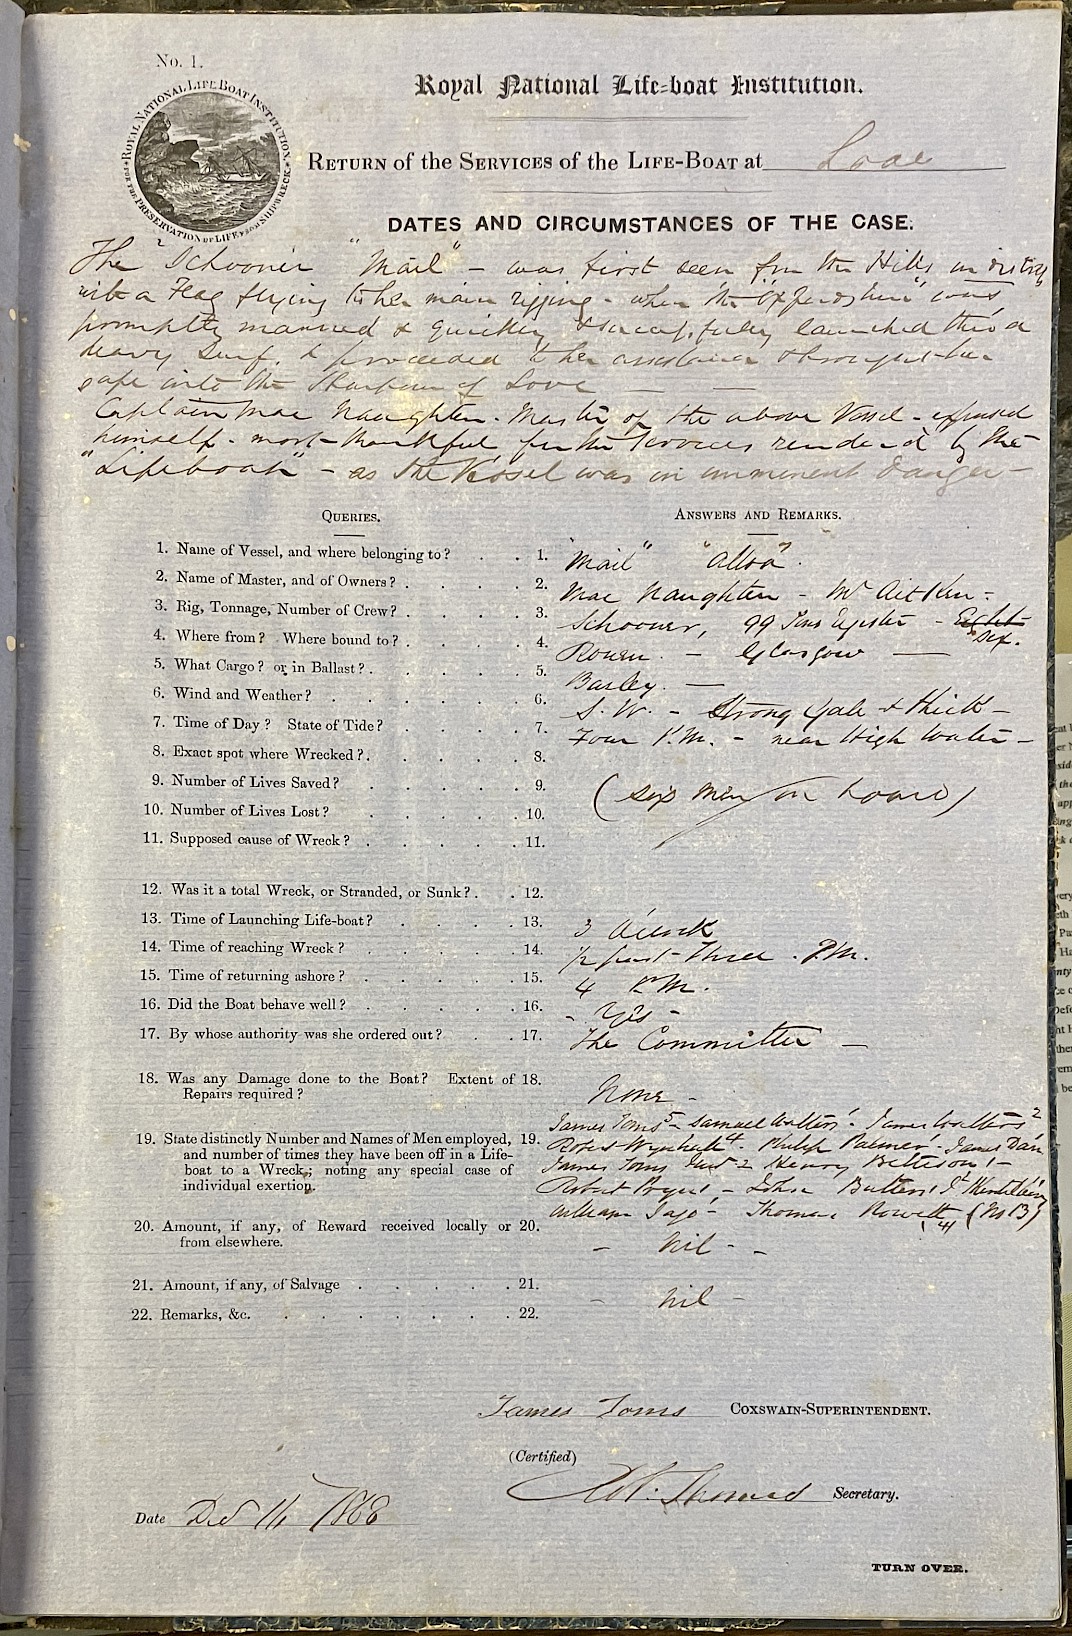 No. 1.
ROYAL NATIONAL LIFE BOAT INSTITUTION.
FOR THE PRESERVATION OF LIFE FROM SHIPWRECK.
Royal National Life-boat Institution.
RETURN of the SERVICES of the LIFE-BOAT at Looe
DATES AND CIRCUMSTANCES OF THE CASE.
The Schooner "Mail" - was first seen from the Hills in distress
with a Flag flying to her main rigging - when the "Oxfordshire" was
promptly manned & quickly & successfully launched thro' a
heavy surf, & proceeded to her assistance & brought her
safe into the Harbour of Looe
Captain Mac Naughten - Master of the above Vessel - expressed
himself - most thankful for the services rendered by the
"Lifeboat" - as the Vessel was in imminent danger -
QUERIES.
ANSWERS AND REMARKS.
1. Name of Vessel, and where belonging to? 1. "Mail" "Alloa".
2. Name of Master, and of Owners? 2. Mac Naughten - Mr Aitken -
3. Rig, Tonnage, Number of Crew? 3. Schooner, 99 Tons Register - Eight six.
4. Where from? Where bound to? 4. Rouen - Glasgow -
5. What Cargo? or in Ballast? 5. Barley. -
6. Wind and Weather? 6. S.W. - Strong Gale & thick -
7. Time of Day? State of Tide? 7. Four P.M. - near High Water -
8. Exact spot where Wrecked? 8.
9. Number of Lives Saved? 9. (six men on board)
10. Number of Lives Lost? 10.
11. Supposed cause of Wreck? 11.
12. Was it a total Wreck, or Stranded, or Sunk? 12.
13. Time of Launching Life-boat? 13. 3 O'clock
14. Time of reaching Wreck? 14. 1/2 past Three. P.M.
15. Time of returning ashore? 15. 4 P.M.
16. Did the Boat behave well? 16. - Yes -
17. By whose authority was she ordered out? 17. The Committee -
18. Was any Damage done to the Boat? Extent of 18. None -
Repairs required?
James Toms 5 - Samuel Walters 1. James Walters 2
19. State distinctly Number and Names of Men employed, 19. Robert 4. Philip Palmer 1 - James
and number of times they have been off in a Life- James Toms 2 Henry 1 -
boat to a Wreck; noting any special case of Robert 1 - John Butters 1
individual exertion. William - Thomas Rowett 4 (No 13)
20. Amount, if any, of Reward received locally or 20. - Nil - -
from elsewhere.
21. Amount, if any, of Salvage 21. - Nil -
22. Remarks, &c. 22.
James Toms COXSWAIN-SUPERINTENDENT.
(Certified)
Thomas Secretary.
Date 1868
TURN OVER.